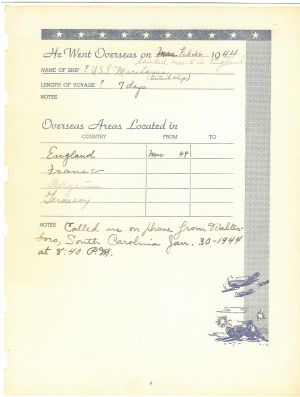 He Went Overseas on Mar Feb 1944
landed Mar. 5 in England
NAME OF SHIP ? U.S.S. Mauretania
(British ship)
LENGTH OF VOYAGE ? 7 days
NOTES
Overseas Areas Located in
COUNTRY FROM TO
England Mar 44
France
Belgium
Germany
NOTES Called us on phone from Walter-
boro, South Carolina Jan. 30-1944
at 8:40 P.M.